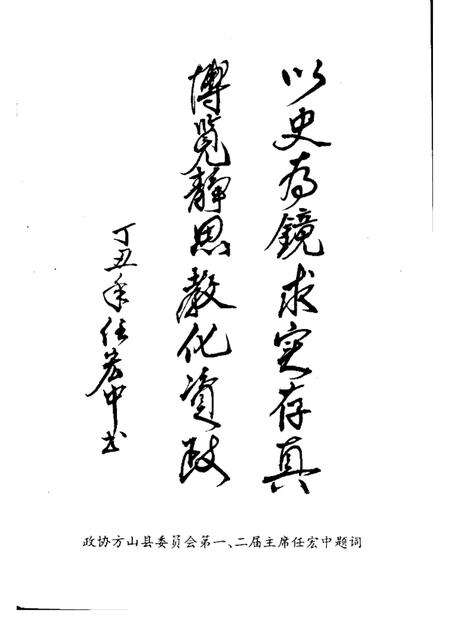 以史为镜求实存真
博览静思教化资政
丁丑年任宏中书
政协方山县委员会第一、二届主席任宏中题词